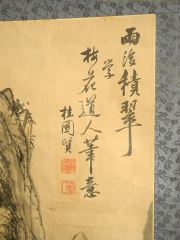 雨後積翠
学
梅花道人筆意
桂園賢